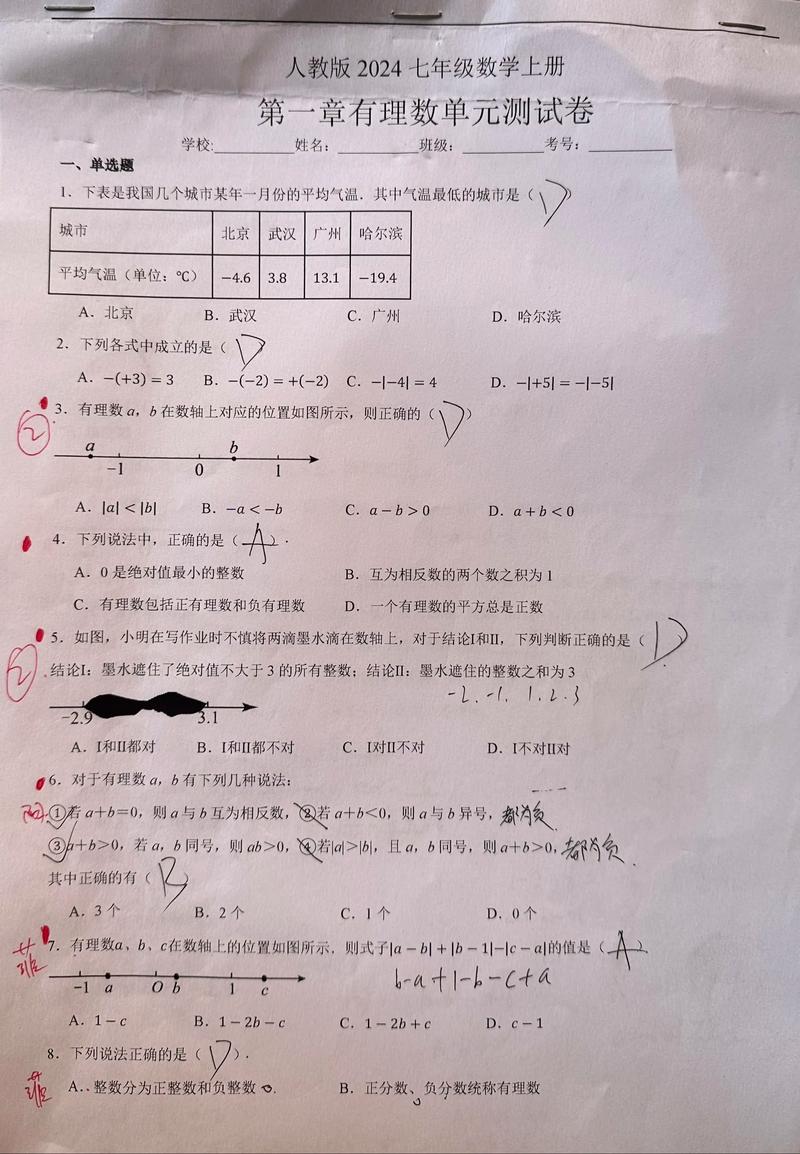 人教版 2024 七年级数学上册
第一章有理数单元测试卷
学校:__________姓名：__________班级：__________考号：__________
一、单选题
1．下表是我国几个城市某年一月份的平均气温．其中气温最低的城市是（ D ）
城市 北京 武汉 广州 哈尔滨
平均气温（单位：℃） −4.6 3.8 13.1 −19.4
A．北京 B．武汉 C．广州 D．哈尔滨
2．下列各式中成立的是（ D ）
A．−(+3) = 3 B．−(−2) = +(−2) C．−|−4| = 4 D．−|+5| = −|−5|
3．有理数 a，b 在数轴上对应的位置如图所示，则正确的（ D ）
2
a b
−1 0 1
A．|a| < |b| B．−a < −b C．a − b > 0 D．a + b < 0
4．下列说法中，正确的是（ A ）．
A．0 是绝对值最小的整数 B．互为相反数的两个数之积为 1
C．有理数包括正有理数和负有理数 D．一个有理数的平方总是正数
5．如图，小明在写作业时不慎将两滴墨水滴在数轴上，对于结论Ⅰ和Ⅱ，下列判断正确的是（ D ）
2
结论Ⅰ：墨水遮住了绝对值不大于 3 的所有整数；结论Ⅱ：墨水遮住的整数之和为 3
-2. -1. 1. 2. 3
−2.9 3.1
A．Ⅰ和Ⅱ都对 B．Ⅰ和Ⅱ都不对 C．Ⅰ对Ⅱ不对 D．Ⅰ不对Ⅱ对
6．对于有理数 a，b 有下列几种说法：
①若 a＋b＝0，则 a 与 b 互为相反数，②若 a＋b＜0，则 a 与 b 异号，都为负
③a＋b＞0，若 a，b 同号，则 ab＞0，④若|a|＞|b|，且 a，b 同号，则 a＋b＞0，都为负.
其中正确的有（ B ）
A．3 个 B．2 个 C．1 个 D．0 个
7．有理数a、b、c在数轴上的位置如图所示，则式子|a − b| + |b − 1|−|c − a|的值是（ A ）
b-a+1-b-c+a
−1 a O b 1 c
A．1 − c B．1 − 2b − c C．1 − 2b + c D．c − 1
8．下列说法正确的是（ D ）．
A．整数分为正整数和负整数 0. B．正分数、负分数统称有理数